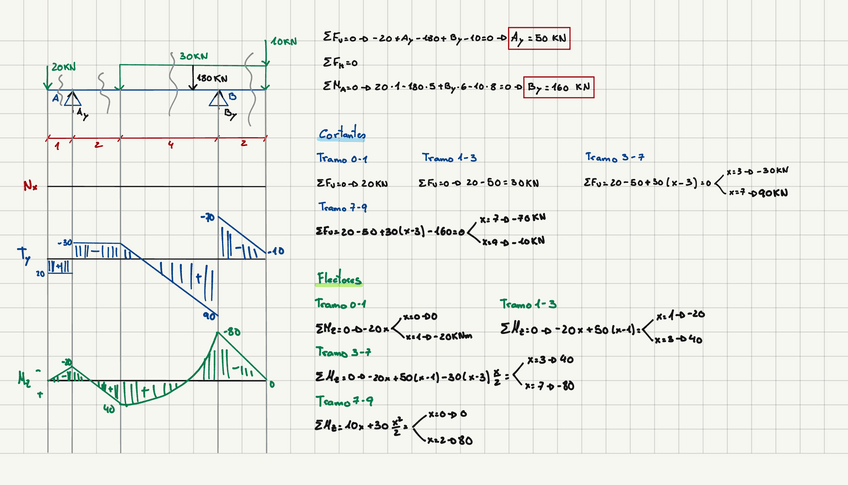 10KN
20KN
30KN
180KN
A
B
Ay
By
1 2 4 2
Nx
Ty
-30
20
-70
-10
90
Mz
-
+
-20
40
-80
0
ΣFv=0→ -20+Ay-180+By-10=0→ Ay = 50 KN
ΣFH=0
ΣMA=0→ 20·1-180·5+By·6-10·8=0→ By=160 KN
Cortantes
Tramo 0-1 Tramo 1-3 Tramo 3-7
ΣFv=0→ 20KN ΣFv=0→ 20-50=30KN ΣFv=20-50+30(x-3)=0 x=3→ -30KN
x=7→ 90KN
Tramo 7-9
ΣFv=20-50+30(x-3)-160=0 x=7→ -70KN
x=9→ -10KN
Flectores
Tramo 0-1 Tramo 1-3
ΣMz=0→ -20x x=0→0 ΣMz=0→ -20x+50(x-1)= x=1→ -20
x=1→ -20KNm x=3→ 40
Tramo 3-7
ΣMz=0→ -20x+50(x-1)-30(x-3) x/2 = x=3→ 40
x=7→ -80
Tramo 7-9
ΣMz=10x+30 x²/2 = x=0→ 0
x=2→ 80